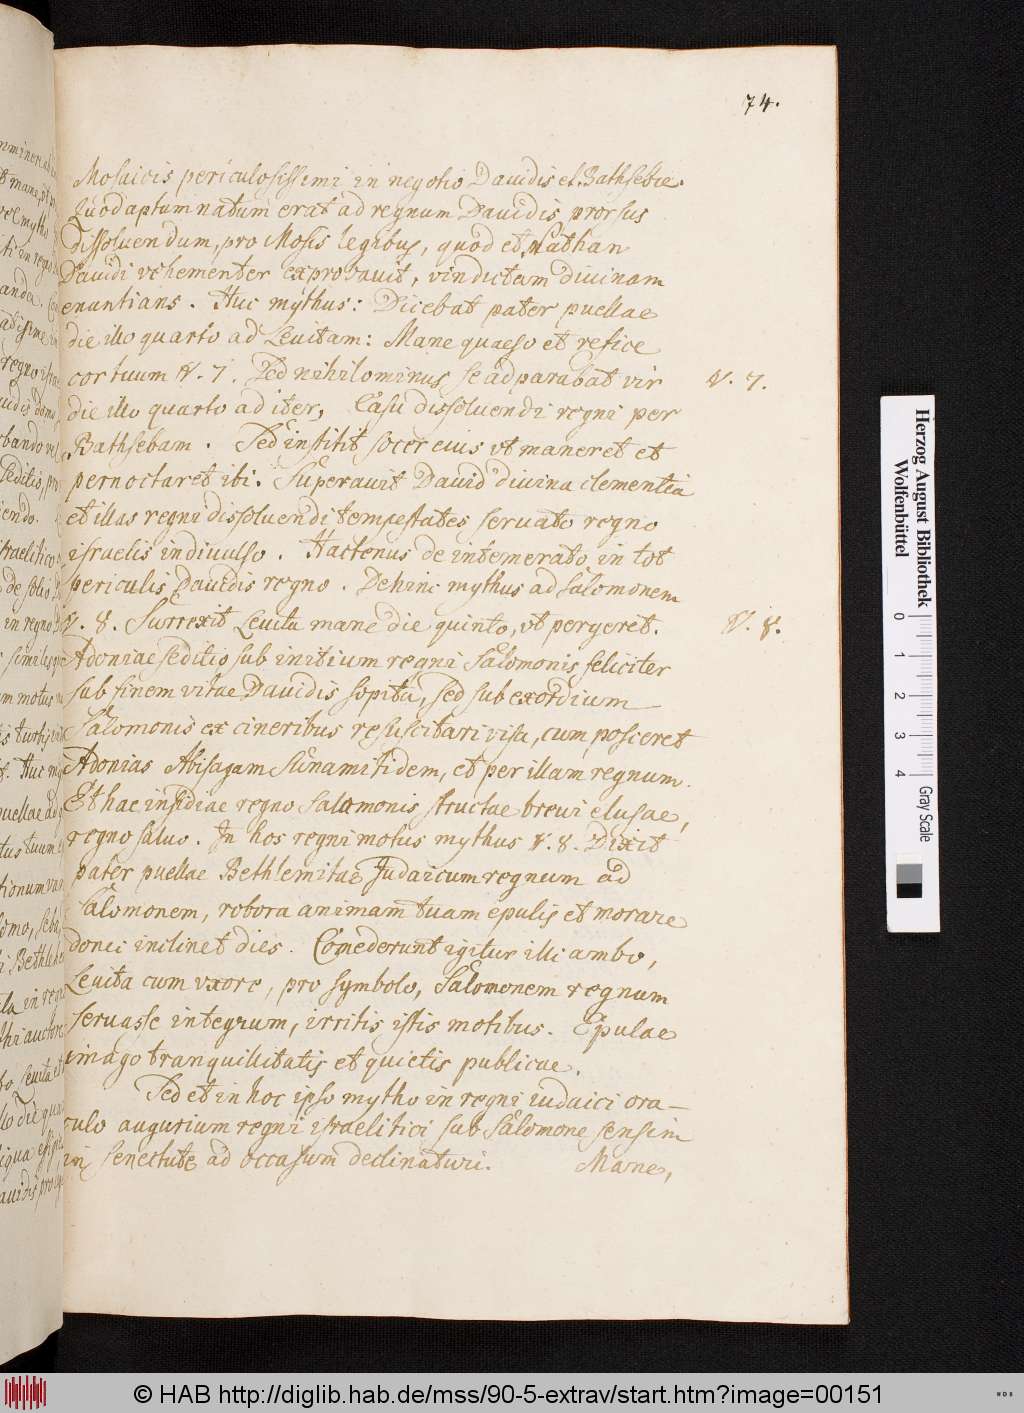 74.
Mosaicis periculosissimi in negotio Davidis et Bathsebae.
Quod aptum natum erat ad regnum Dauidis prorsus
dissoluendum, pro Mosis legibus, quod et Nathan
Dauidi vehementer exprobauit, vindictam diuinam
enuntians. Huc mythus: Dicebat pater puellae
die illo quarto ad Leuitam: Mane quaeso et refice
cor tuum V. 7. Sed nihilominus se adparabat vir
V. 7.
die illo quarto ad iter, Casu dissoluendi regni per
Bathsebam. Sed institit socer eius vt maneret et
pernoctaret ibi. Superauit Dauid diuina clementia
et illas regni dissoluendi tempestates seruato regno
israelis indiuulso. Hactenus de intemerato in tot
periculis Dauidis regno. Dehinc mythus ad Salomonem
V. 8. Surrexit Leuita mane die quinto, vt pergeret.
V. 8.
Adoniae seditio sub initium regni Salomonis feliciter
sub finem vitae Dauidis sopita, sed sub exordium
Salomonis ex cineribus resuscitari visa, cum posceret
Adonias Abisagam Sunamitidem, et per illam regnum.
Et hae insidiae regno Salomonis structae breui elusae,
regno saluo. In hos regni motus mythus V. 8. Dixit
pater puellae Bethlemitae Judaicum regnum ad
Salomonem, robora animam tuam epulis et morare
donec inclinet dies. Comederunt igitur illi ambo,
Leuita cum vxore, pro symbolo, Salomonem regnum
seruasse integrum, irritis istis motibus. Epulae
imago tranquillitatis et quietis publicae.
Sed et in hoc ipso mytho in regni iudaici ora-
culo augurium regni israelitici sub Salomone sensim
in senectute ad occasum declinaturi. Mane,
Herzog August Bibliothek
Wolfenbüttel
0 1 2 3 4
Gray Scale
© HAB http://diglib.hab.de/mss/90-5-extrav/start.htm?image=00151